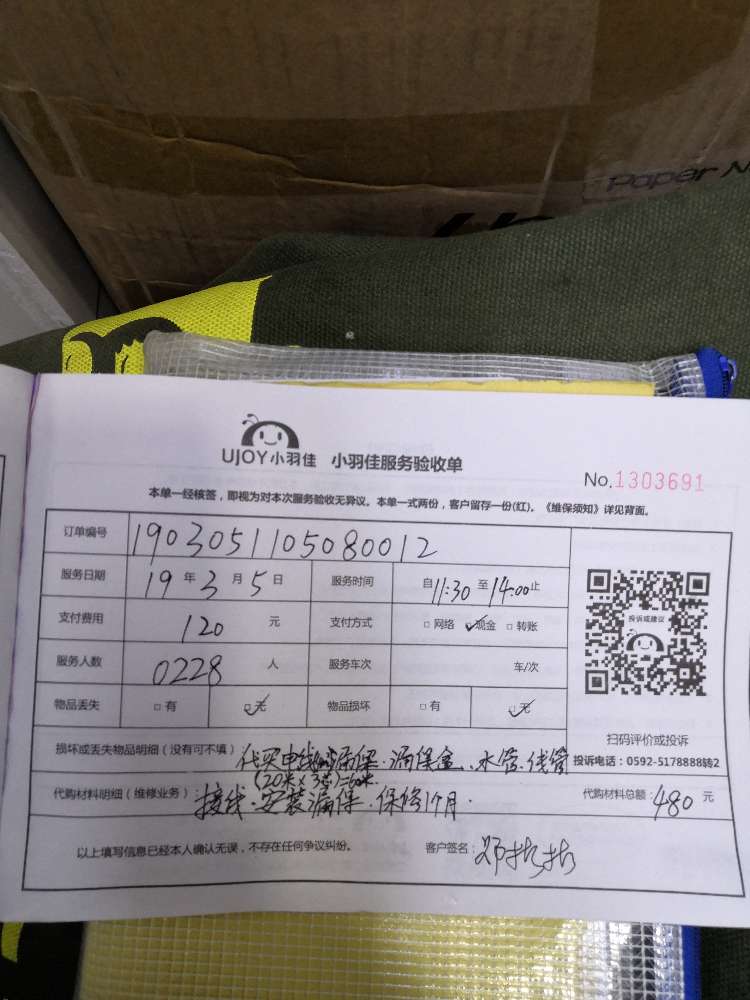 Paper N
UJOY小羽佳 小羽佳服务验收单
No.1303691
本单一经核签，即视为对本次服务验收无异议。本单一式两份，客户留存一份(红)。《维保须知》详见背面。
订单编号 1903051105080012
服务日期 19年3月5日 服务时间 自11:30至14:00止
支付费用 120元 支付方式 □网络 ☑现金 □转账
服务人数 0228人 服务车次 车/次
物品丢失 □有 ☑无 物品损坏 □有 ☑无
投诉或建议
扫码评价或投诉
投诉电话：0592-5178888转2
损坏或丢失物品明细（没有可不填） 代买电线 漏保、漏保盒、水管、线管
(20米×3芯)=60米
代购材料明细（维修业务） 接线·安装漏保·保修1个月·
代购材料总额：480元
以上填写信息已经本人确认无误，不存在任何争议纠纷。 客户签名：